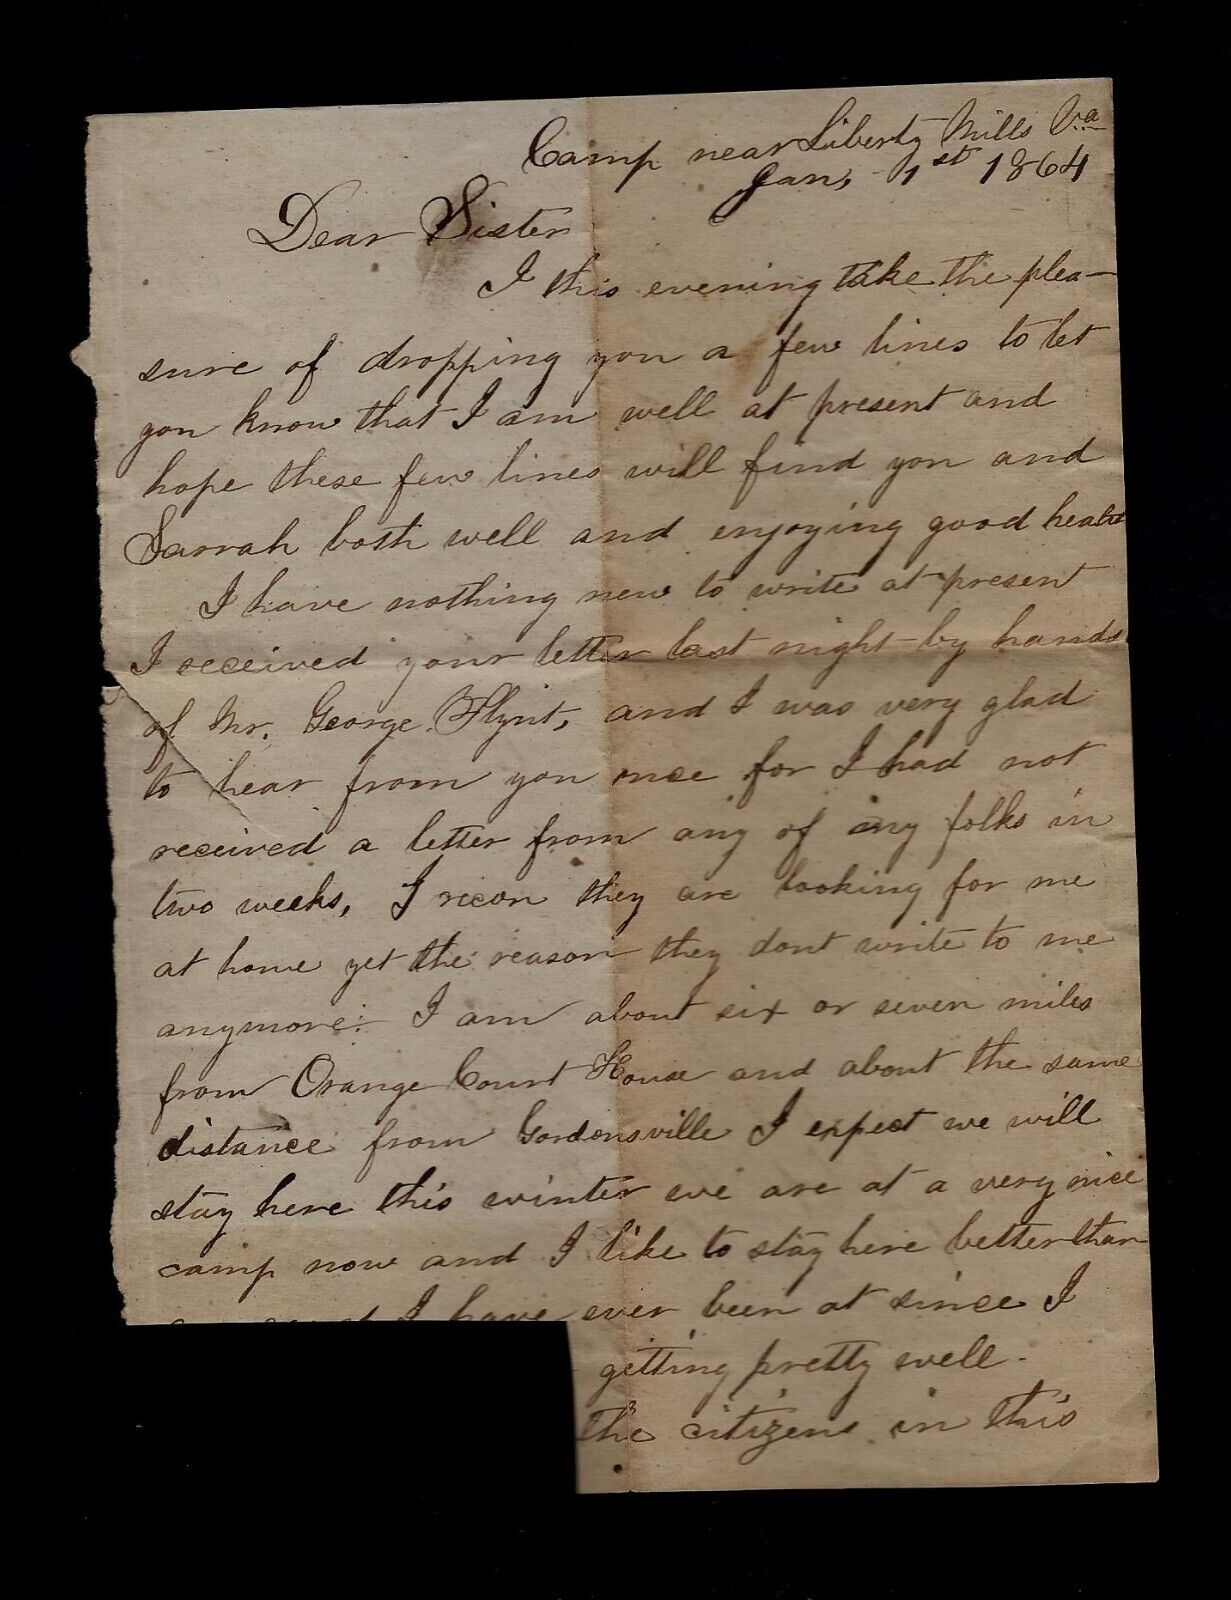 Camp near Liberty Mills Va
Jan, 1st 1864
Dear Sister
I this evening take the plea-
sure of dropping you a few lines to let
you know that I am well at present and
hope these few lines will find you and
Sarrah both well and enjoying good health
I have nothing new to write at present
I received your letter last night by hands
of Mr. George Flynt, and I was very glad
to hear from you once for I had not
received a letter from any of my folks in
two weeks, I recon they are looking for me
at home yet the reason they dont write to me
anymore. I am about six or seven miles
from Orange Court House and about the same
distance from Gordonsville I expect we will
stay here this winter we are at a very nice
camp now and I like to stay here better than
I have ever been at since I
getting pretty well.
the citizens in this